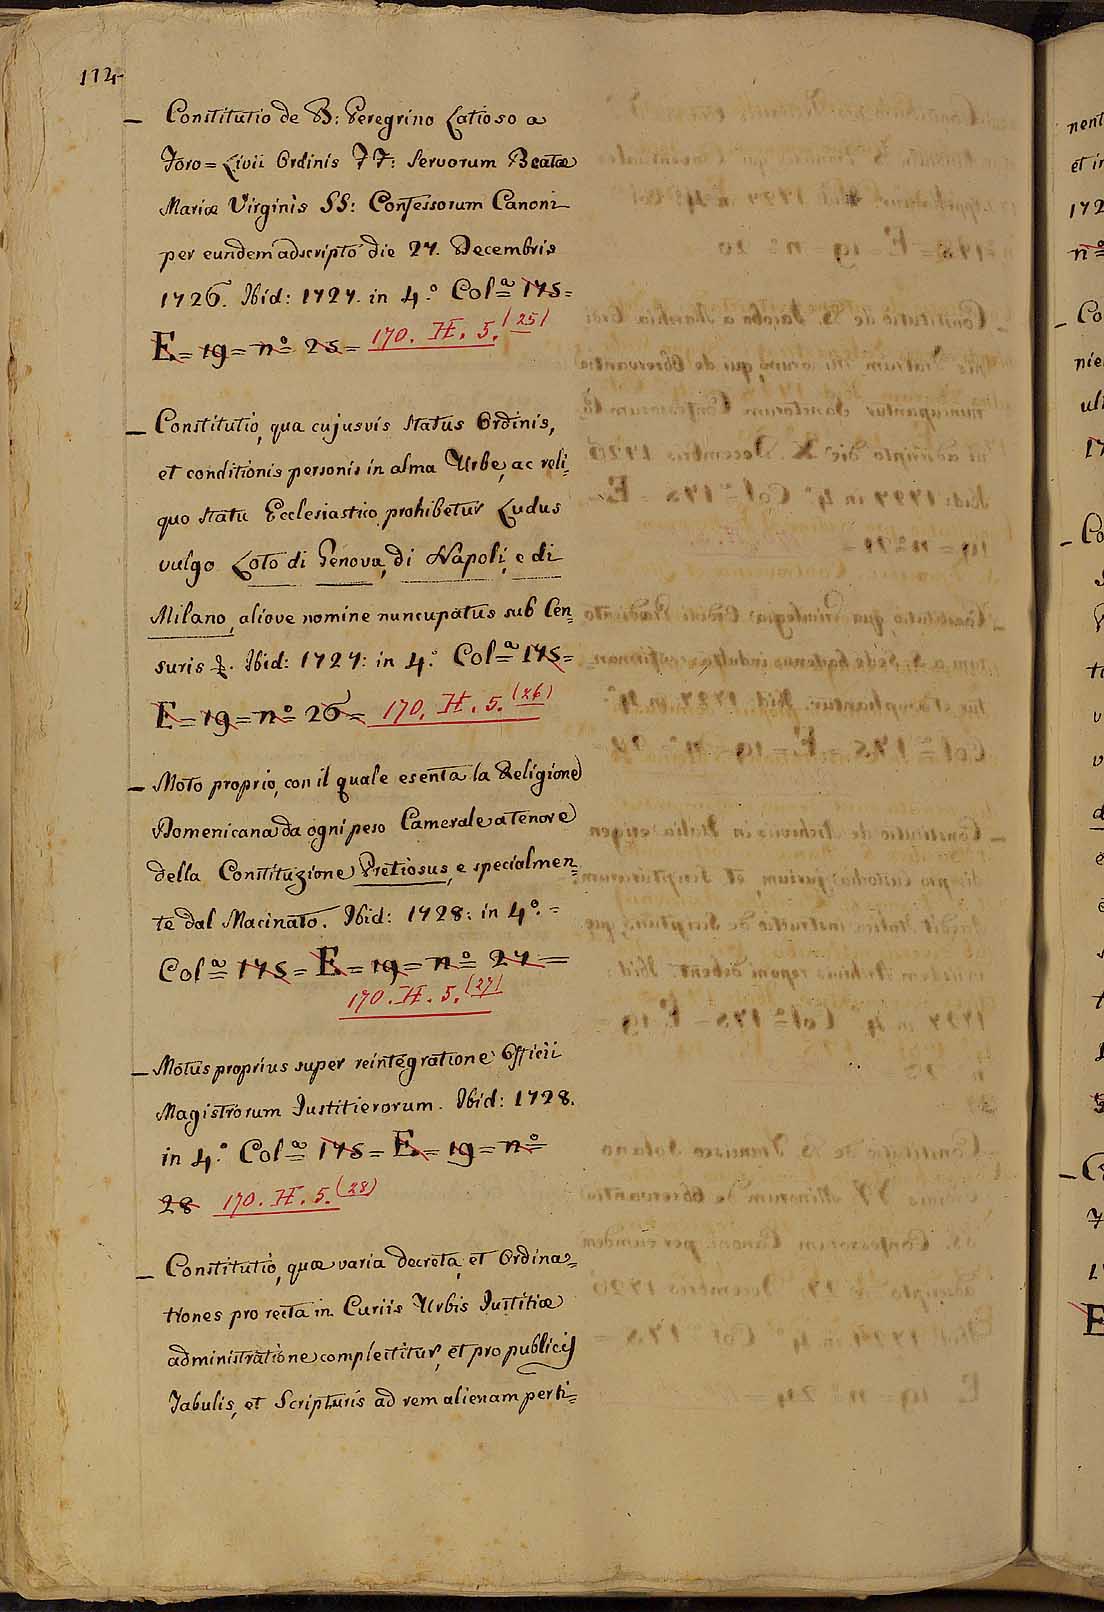 114
– Constitutio de B: Peregrino Latioso a
Foro=Livii Ordinis FF: Servorum Beatæ
Mariæ Virginis SS: Confessorum Canoni
per eundem adscripto die 27. Decembris
1726. Ibid: 1727. in 4.º Colª 175=
E=19=nº 25= 170. H. 5. (25)
– Constitutio, qua cujusvis status Ordinis,
et conditionis personis in alma Urbe, ac reli=
quo statu Ecclesiastico prohibetur Ludus
vulgo Loto di Genova, di Napoli, e di
Milano, aliove nomine nuncupatus sub Cen=
suris &. Ibid: 1727: in 4.º Colª 175=
E=19=nº 26= 170. H. 5. (26)
– Moto proprio, con il quale esenta la Religione
Domenicana da ogni peso Camerale a tenore
della Constituzione Pretiosus, e specialmen=
te dal Macinato. Ibid: 1728: in 4º.=
Colª 175=E=19=nº 27=
170. H. 5. (27)
– Motus proprius super reintegratione Officii
Magistrorum Justitierorum. Ibid: 1728.
in 4.º Colª 175=E=19=nº
28 170. H. 5. (28)
– Constitutio, quæ varia decreta, et Ordina=
tiones pro recta in Curiis Urbis Justitiæ
administratione complectitur, et pro publicis
Tabulis, et Scripturis ad rem alienam perti=